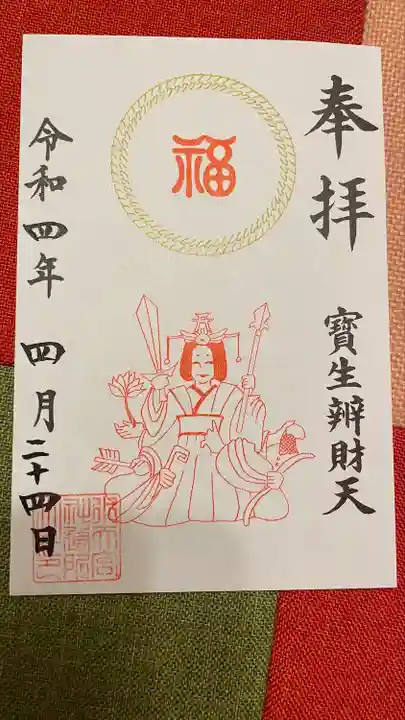 奉拝
寶生辨財天
福
令和四年 四月二十四日